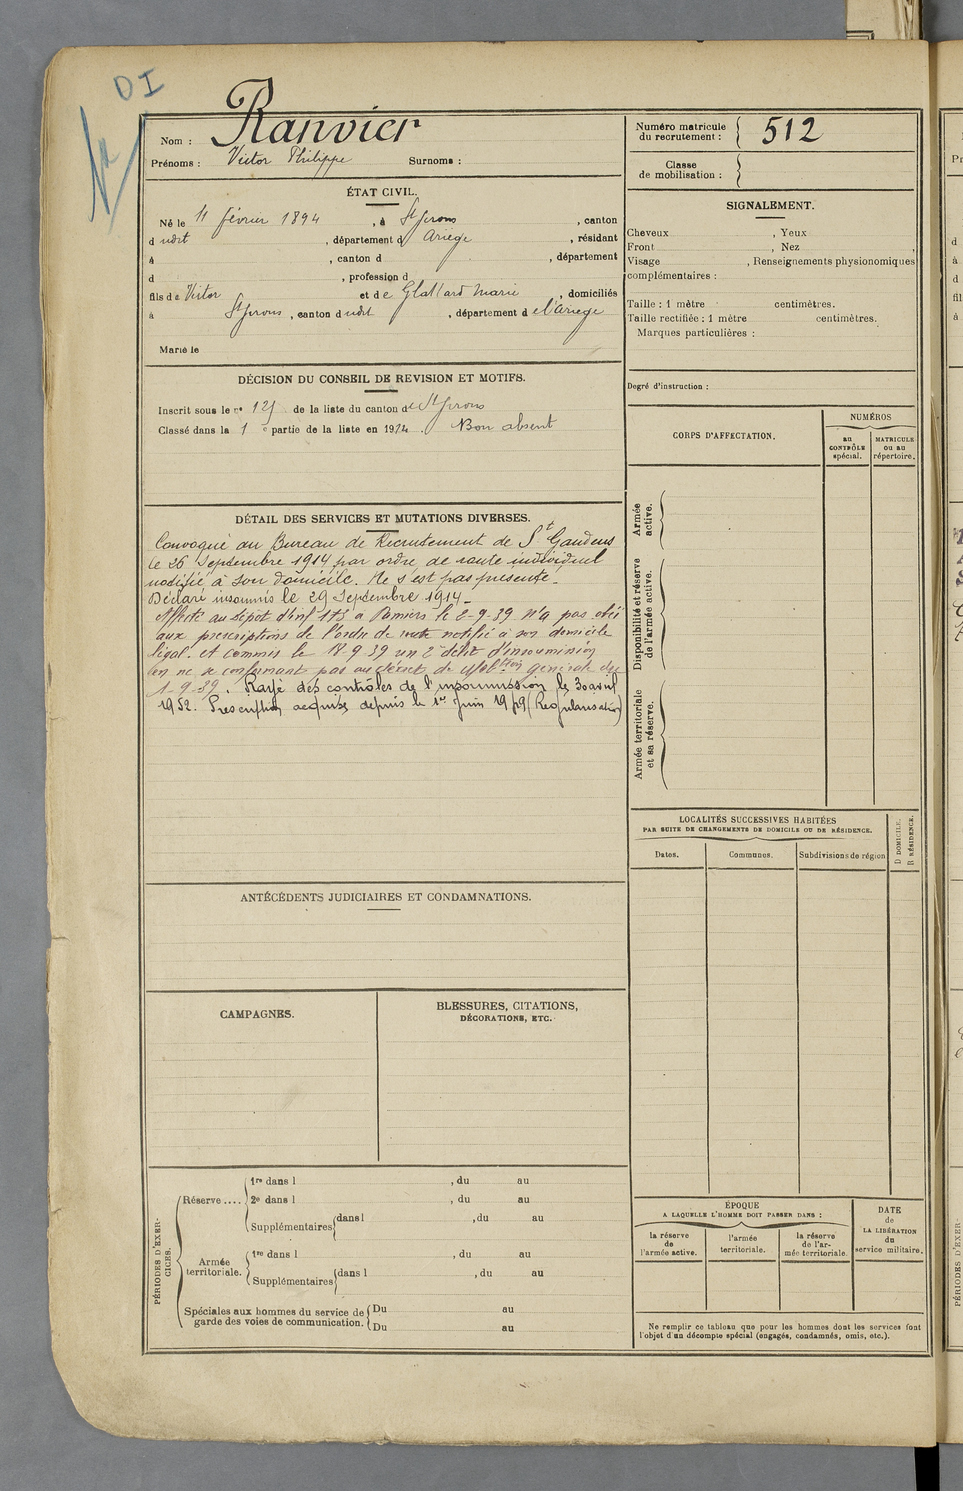 DI
Nom : Ranvier
Prénoms : Victor Philippe Surnoms :
ÉTAT CIVIL.
Né le 11 février 1894, à St Girons, canton
d udit, département d Ariège, résidant
à , canton d , département
d , profession d
fils de Victor et de Marie, domiciliés
à St Girons, canton dudit, département de l'Ariège
Marié le
DÉCISION DU CONSEIL DE REVISION ET MOTIFS.
Inscrit sous le no de la liste du canton de St Girons
Classé dans la 1e partie de la liste en 1914. Bon absent
DÉTAIL DES SERVICES ET MUTATIONS DIVERSES.
Convoqué au Bureau de Recrutement de St Gaudens
le 26 Septembre 1914, par ordre de route individuel
notifié à son domicile. Ne s'est pas présenté.
Déclaré insoumis le 29 Septembre 1914.
Affecté au dépôt d'inf 173 à Pamiers le 2-9-39 n'a pas obéi
aux prescriptions de l'ordre de route notifié à son domicile
légal. et commis le 18-9-39 un 2e délit d'insoumission
en ne se conformant pas au décret de Mobtion générale du
1-9-39. Rayé des contrôles de l'insoumission le 30 avril
1952. Prescription acquise depuis le 1er Juin 1949 (Régularisation)
ANTÉCÉDENTS JUDICIAIRES ET CONDAMNATIONS.
CAMPAGNES.
BLESSURES, CITATIONS,
DÉCORATIONS, ETC.
PÉRIODES D'EXERCICES.
Réserve .... 1re dans l , du au
2e dans l , du au
Supplémentaires dans l , du au
Armée territoriale. 1re dans l , du au
Supplémentaires dans l , du au
Spéciales aux hommes du service de Du au
garde des voies de communication. Du au
Numéro matricule
du recrutement : 512
Classe
de mobilisation :
SIGNALEMENT.
Cheveux , Yeux
Front , Nez ,
Visage , Renseignements physionomiques
complémentaires :
Taille : 1 mètre centimètres.
Taille rectifiée : 1 mètre centimètres.
Marques particulières :
Degré d'instruction :
CORPS D'AFFECTATION.
NUMÉROS
au
CONTRÔLE
spécial.
MATRICULE
OU AU
répertoire.
Armée
active.
Disponibilité et réserve
de l'armée active.
Armée territoriale
et sa réserve.
LOCALITÉS SUCCESSIVES HABITÉES
PAR SUITE DE CHANGEMENTS DE DOMICILE OU DE RÉSIDENCE.
Dates. Communes. Subdivisions de région
D DOMICILE.
R RÉSIDENCE.
ÉPOQUE
A LAQUELLE L'HOMME DOIT PASSER DANS :
la réserve
de
l'armée active.
l'armée
territoriale.
la réserve
de l'ar-
mée territoriale.
DATE
de
LA LIBÉRATION
du
service militaire.
Ne remplir ce tableau que pour les hommes dont les services font
l'objet d'un décompte spécial (engagés, condamnés, omis, etc.).
PÉRIODES D'EXER-